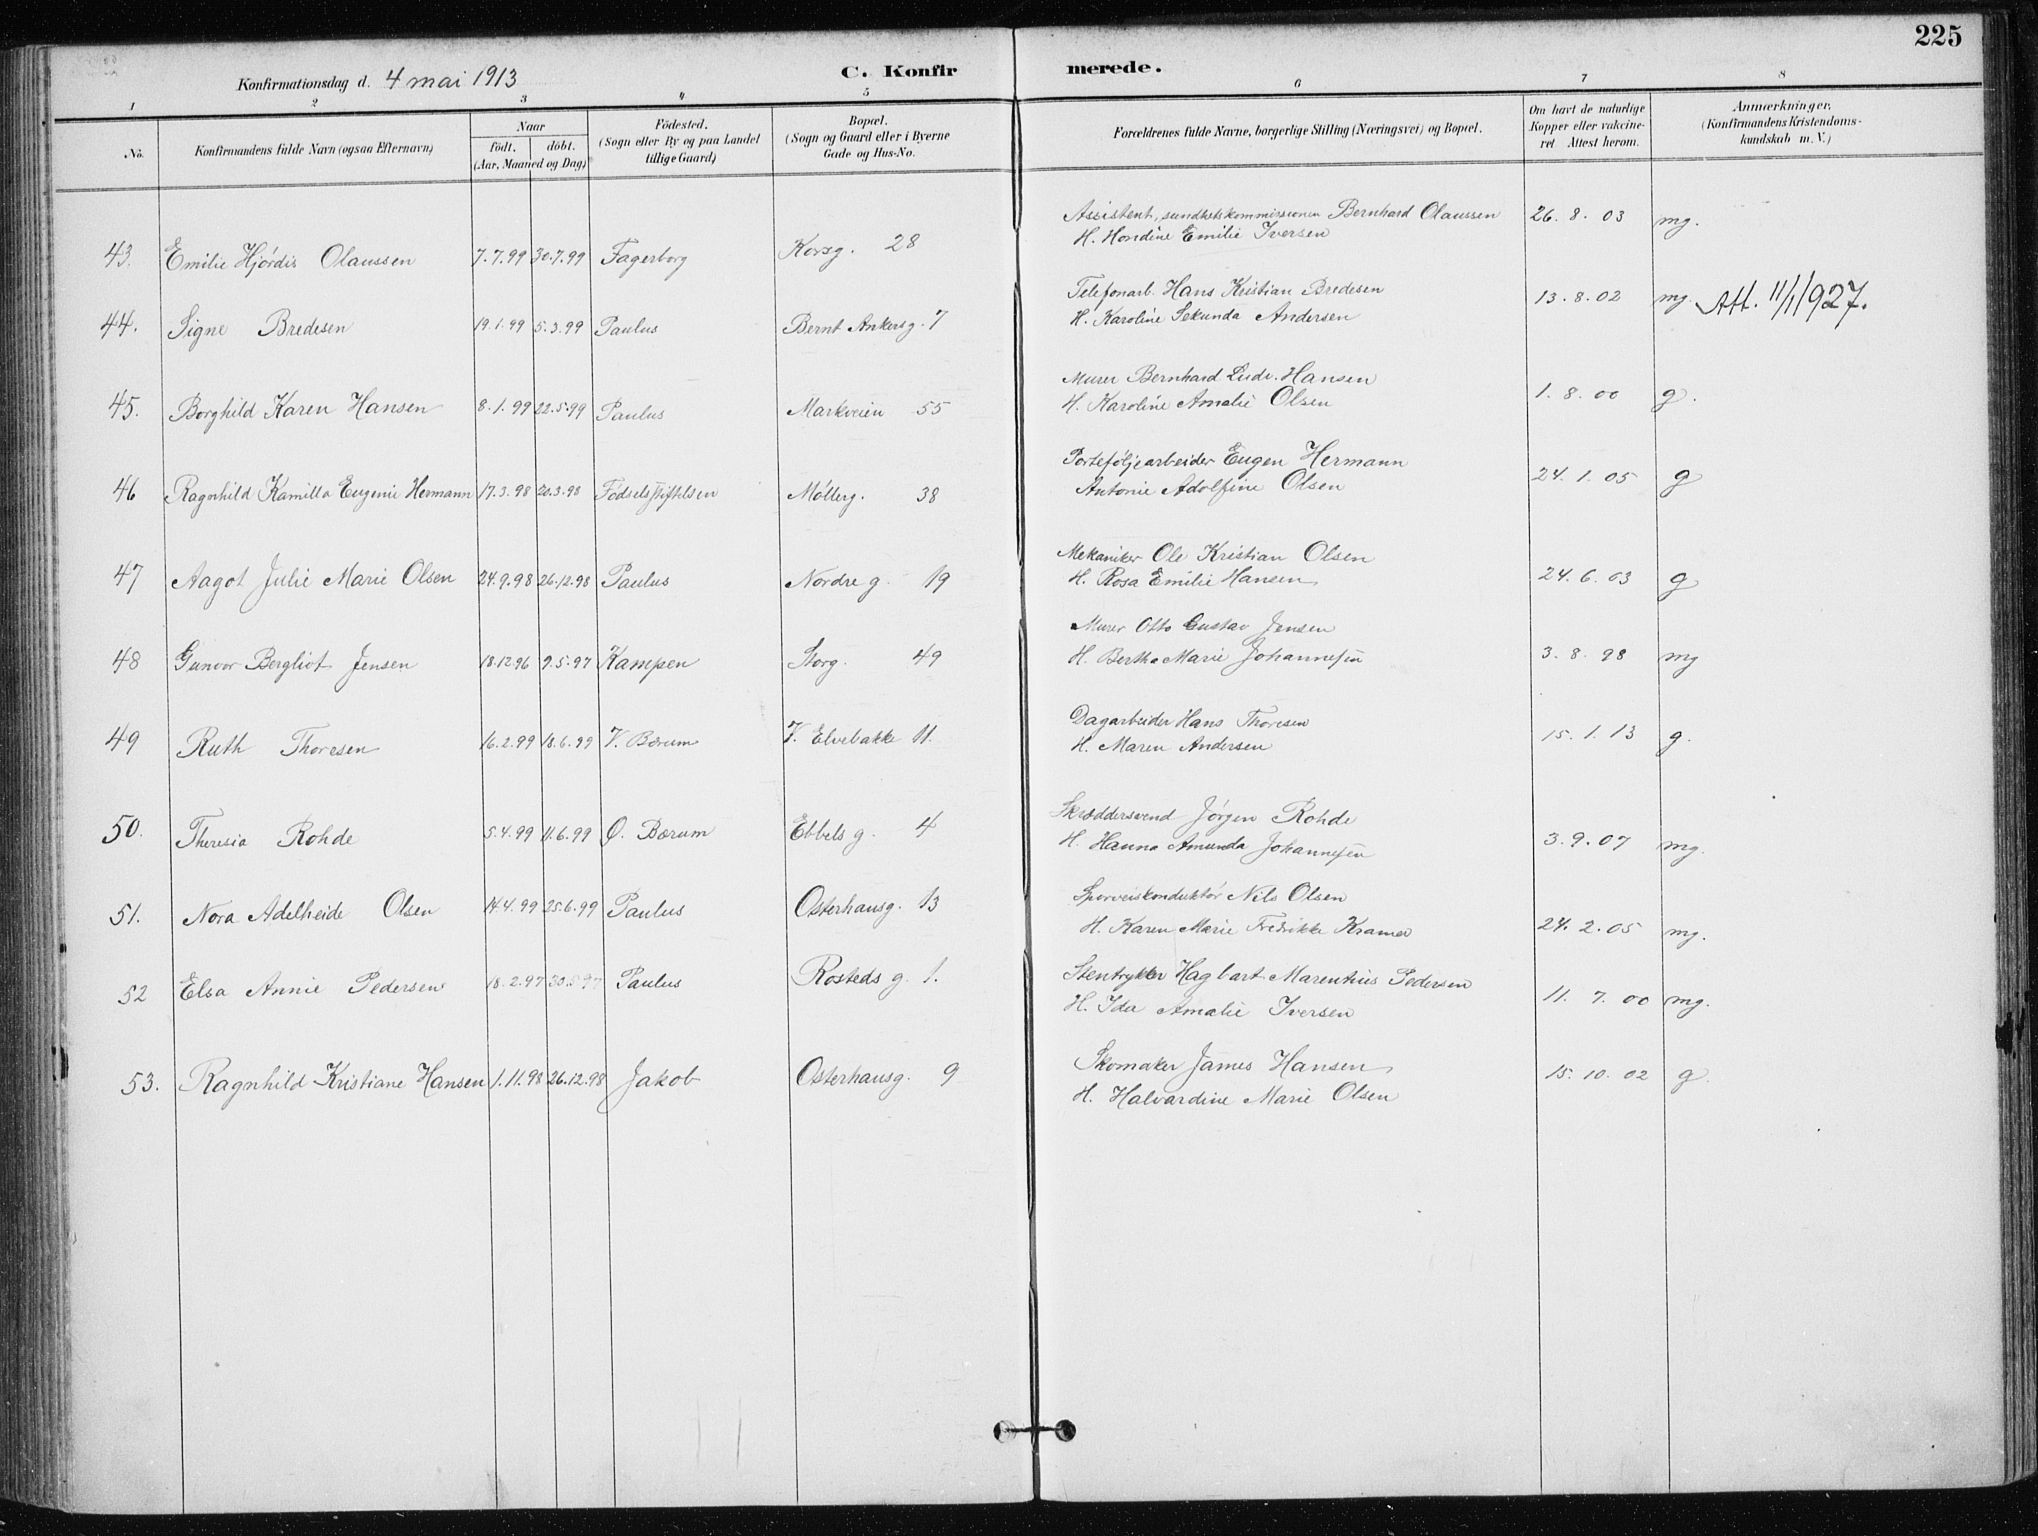 225
Konfirmationsdag d. 4 mai 1913
C. Konfirmerede.
1 2 3 4 5 6 7 8
No. Konfirmandens fulde Navn (ogsaa Efternavn) Naar født. døbt. (Aar, Maaned og Dag) Fødested. (Sogn eller By og paa Landet tillige Gaard) Bopæl. (Sogn og Gaard eller i Byerne Gade og Hus-No. Forældrenes fulde Navne, borgerlige Stilling (Næringsvei) og Bopæl. Om havt de naturlige Kopper eller vakcineret Attest herom. Anmærkninger. (Konfirmandens Kristendomskundskab m. V.)
43. Emilie Hjørdis Olaussen 7.7.99 30.7.99 Fagerborg Korsg. 28 Assistent, sundhetskommissionen Bernhard Olaussen 26. 8. 03 mg.
H. Hondine Emilie Iversen
44. Signe Bredesen 19.1.99 5.3.99 Paulus Bernt Ankersg. 7 Telefonarb. Hans Kristian Bredesen 13. 8. 02 mg. Att. 11/1 1927.
H. Karoline Sekunda Andersen
45. Borghild Karen Hansen 8.1.99 22.5.99 Paulus Markveien 55 Murer Bernhard Ludv. Hansen 1. 8. 00 g.
H. Karoline Amalie Olsen
46 Ragnhild Kamilla Eugenie Hermann 17.3.98 20.3.98 Fødselsstiftelsen Møllerg. 38 Porteføljearbeider Eugen Hermann 24. 1. 05 g
Antonie Adolfine Olsen
47 Aagot Julie Marie Olsen 24.9.98 26.12.98 Paulus Nordre g. 19 Mekaniker Ole Kristian Olsen 24. 6. 03 g
H. Rosa Emilie Hansen
48 Gunvor Bergliot Jensen 18.12.96 9.5.97 Kampen Storg. 49 Murer Otto Gustav Jensen 3. 8. 98 mg
H. Bertha Marie Johannesen
49 Ruth Thoresen 16.2.99 18.6.99 V. Bærum V. Elvebakke 11. Dagarbeider Hans Thoresen 15. 1. 13 g.
H. Maren Andersen
50. Theresia Rohde 5.4.99 11.6.99 Ø. Bærum Ebbels g. 4 Skræddersvend Jørgen Rohde 3. 9. 07 mg.
H. Hanna Amunda Johannesen
51. Nora Adelheide Olsen 14.4.99 25.6.99 Paulus Osterhausg. 13 Sporveiskonduktør Nils Olsen 24. 2. 05 mg.
H. Karen Marie Fredrikke Kramer
52 Elsa Annie Pedersen 18.2.97 30.5.97 Paulus Rosteds g. 1. Stentrykker Hagbart Marentius Pedersen 11. 7. 00 mg.
H. Ida Amalie Iversen
53. Ragnhild Kristiane Hansen 1.11.98 26.12.98 Jakob Osterhausg. 9 Skomaker James Hansen 15. 10. 02 g.
H. Halvardine Marie Olsen